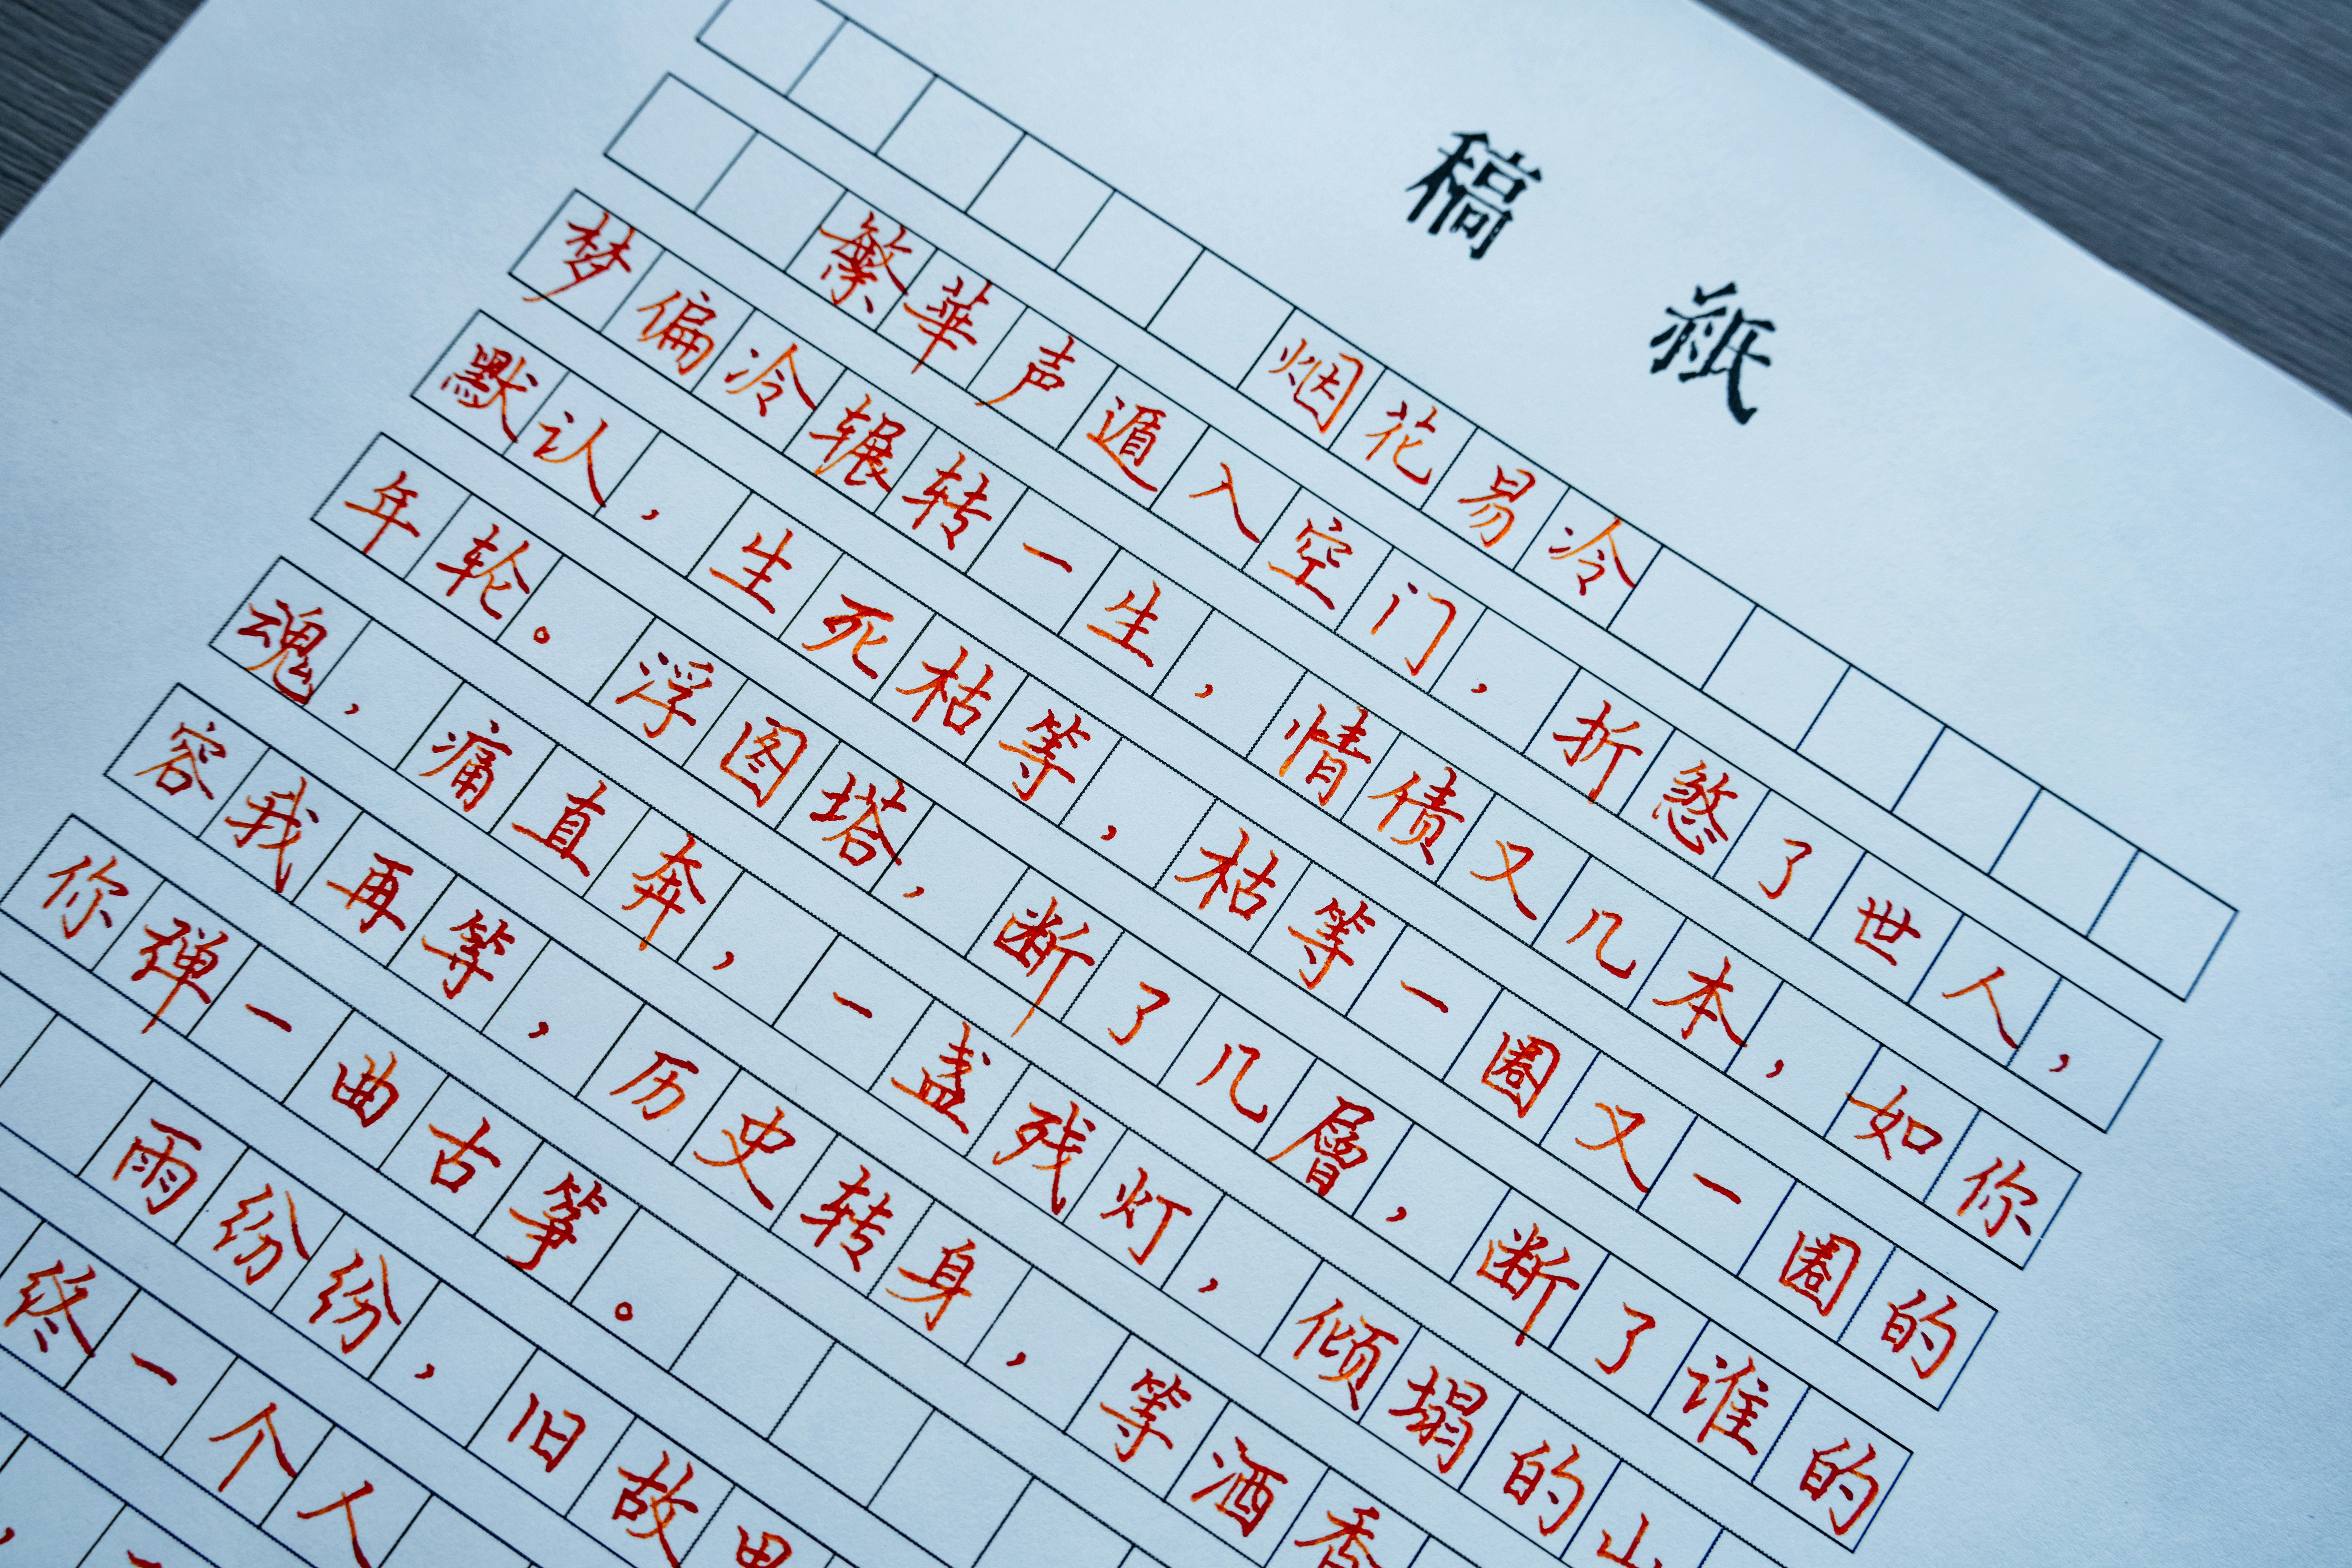 稿紙
烟花易冷
繁華声遁入空门，折煞了世人，
梦偏冷辗转一生，情债又几本，如你
默认，生死枯等，枯等一圈又一圈的
年轮。浮图塔，断了几層，断了谁的
魂，痛直奔，一盏残灯，倾塌的山
容我再等，历史转身，等酒香
你禅一曲古筝。
雨纷纷，旧故里
终一个人